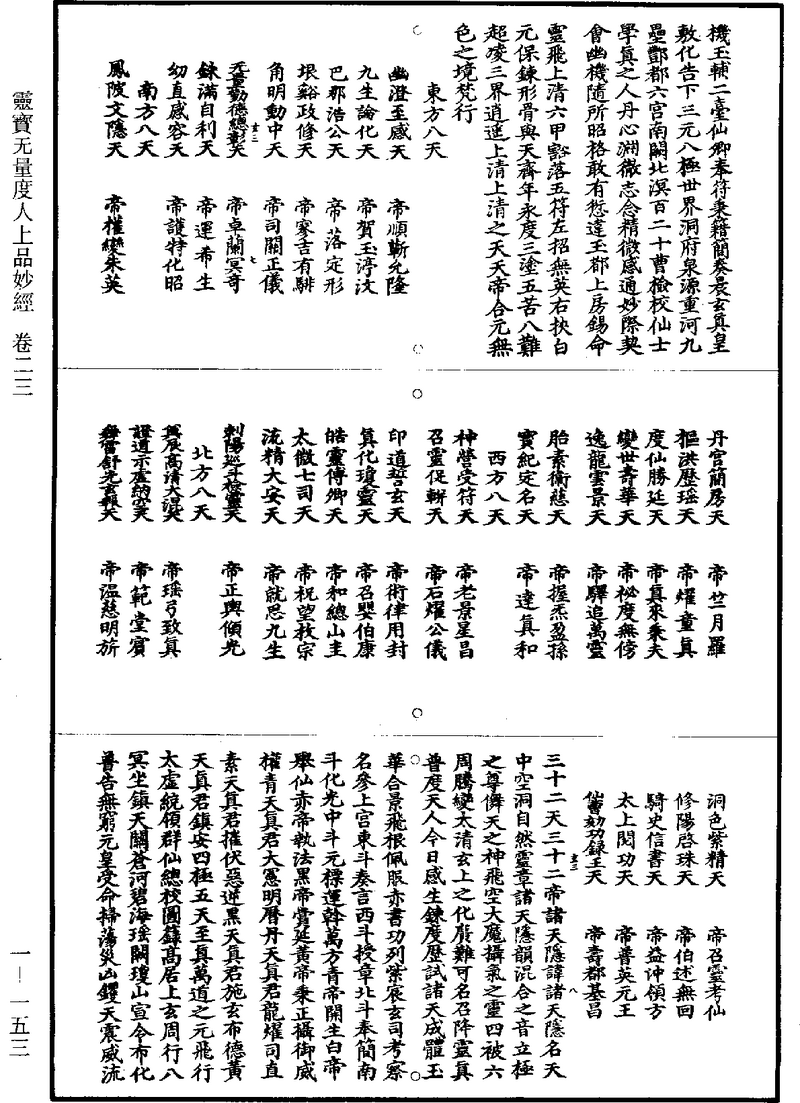 靈寶无量度人上品妙經　卷二三
一—一五三
機玉輔二臺仙卿奉符秉籍簡奏晨玄真皇
敷化告下三元八極世界洞府泉源重河九
壘酆都六宮南闕北溟百二十曹檢校仙士
學真之人丹心淵微志念精微感通妙際契
會幽機隨所昭格敢有愆違玉都上房錫命
靈飛上清六甲豁落五符左招無英右挾白
元保鍊形骨與天齊年永度三塗五苦八難
超凌三界逍遙上清上清之天天帝合元無
色之境梵行
東方八天
幽澄至感天　帝順靳允隆
九生論化天　帝賀玉渟汶
巴那浩公天　帝落定形
垠谿政脩天　帝寥吉有騑
角明動中天　帝司關正儀
无量勤德總彰天　帝卓蘭冥奇
玄三　七
錬滿自利天　帝運希生
幼直感容天　帝護特化昭
南方八天
鳳陂文隱天　帝權變朱英
丹宮簡房天　帝竺月羅
樞洪歷瑶天　帝燿童真
度仙勝延天　帝真來秉夫
變世壽華天　帝祕度無傍
逸龍雲景天　帝驛追萬靈
胎素衡慈天　帝握炁盈孫
寶紀定名天　帝達真和
西方八天
神營受符天　帝老景星昌
召靈促軿天　帝石燿公儀
印道誓玄天　帝術律用封
真化瓊靈天　帝召嬰伯康
皓靈傳卿天　帝和總山主
太微七司天　帝祝望枚宗
流精大安天　帝就思九生
刺陽巡斗捡靈天　帝正輿傾光
北方八天
興辰高清大混天　帝瑶弓致真
證道示虛納空天　帝範堂賓
舒光玄報天　帝温慈明旂
洞色紫精天　帝召靈考仙
修陽啓珠天　帝伯述無回
騎史信書天　帝益沖領方
太上閔功天　帝普英元王
仙曹劾功録王天　帝壽郡基昌
玄三　八
三十二天三十二帝諸天隱諱諸天隱名天
中空洞自然靈章諸天隱韻混合之音立極
之尊儕天之神飛空大魔攝氣之靈四被六
周騰變太清玄上之化廣難可名召降靈真
普度天人今日感生錬度歷試諸天成體玉
華合景飛根佩服赤書功列紫宸玄司考察
名參上宮東斗奏言西斗授章北斗奉簡南
斗化光中斗元標運斡萬方青帝開生白帝
舉仙赤帝執法黑帝賞延黃帝秉正攝御威
權青天真君大憲明曆丹天真君龍燿司直
素天真君摧伏惡逆黑天真君施玄布德黃
天真君鎮安四極五天至真萬道之元飛行
太虛統領群仙總校圖籙高居上玄周行八
冥坐鎮天關蒼河碧海瑶闕瓊山宣令布化
普告無窮元皇受命掃蕩災凶鑠天震威流